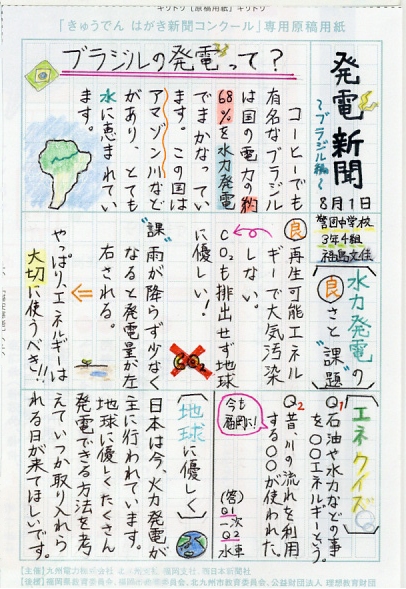 キリトリ［原稿用紙］キリトリ
「きゅうでん はがき新聞コンクール」専用原稿用紙
発電新聞
〜ブラジル編〜
8月1日
曽田中学校
3年4組
ブラジルの発電って？
コーヒーでも
有名なブラジル
は国の電力の約
68%を水力発電
でまかなってい
ます。この国は
アマゾン川など
があり、とても
水に恵まれてい
ます。
水力発電の
良さと“課題”
良 再生可能エネル
ギーで大気汚染
しない。
CO₂も排出せず地球
に優しい！
“課”雨が降らず少なく
なると発電量が左
右される。
⇒
やっぱり、エネルギーは
大切に使うべき!!
CO₂
エネクイズ
Q1石油や水力などの事
を〇〇エネルギーという。
Q2昔、川の流れを利用
する〇〇が使われた。
今も
福岡に！
(答)
Q1
一次
Q2
水車
地球に優しく
日本は今、火力発電が
主に行われています。
地球に優しくたくさん
発電できる方法を考
えていつか取り入れら
れる日が来てほしいです。
【主催】九州電力株式会社 北九州支社、福岡支社、西日本新聞社
【後援】福岡県教育委員会、福岡市教育委員会、北九州市教育委員会、公益財団法人 理想教育財団